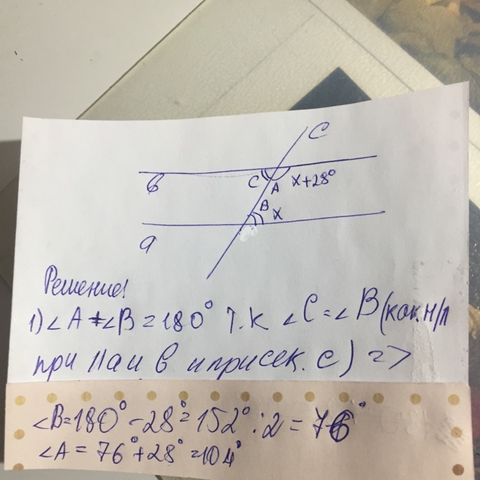 C
в
C
A
x+28°
B
x
a
Решение!
1) ∠A+∠B=180° т.к ∠C=∠B (как.н/л
при ||a и в и присек. c) =>
∠B=180°-28°=152°:2=76°
∠A=76°+28°=104°